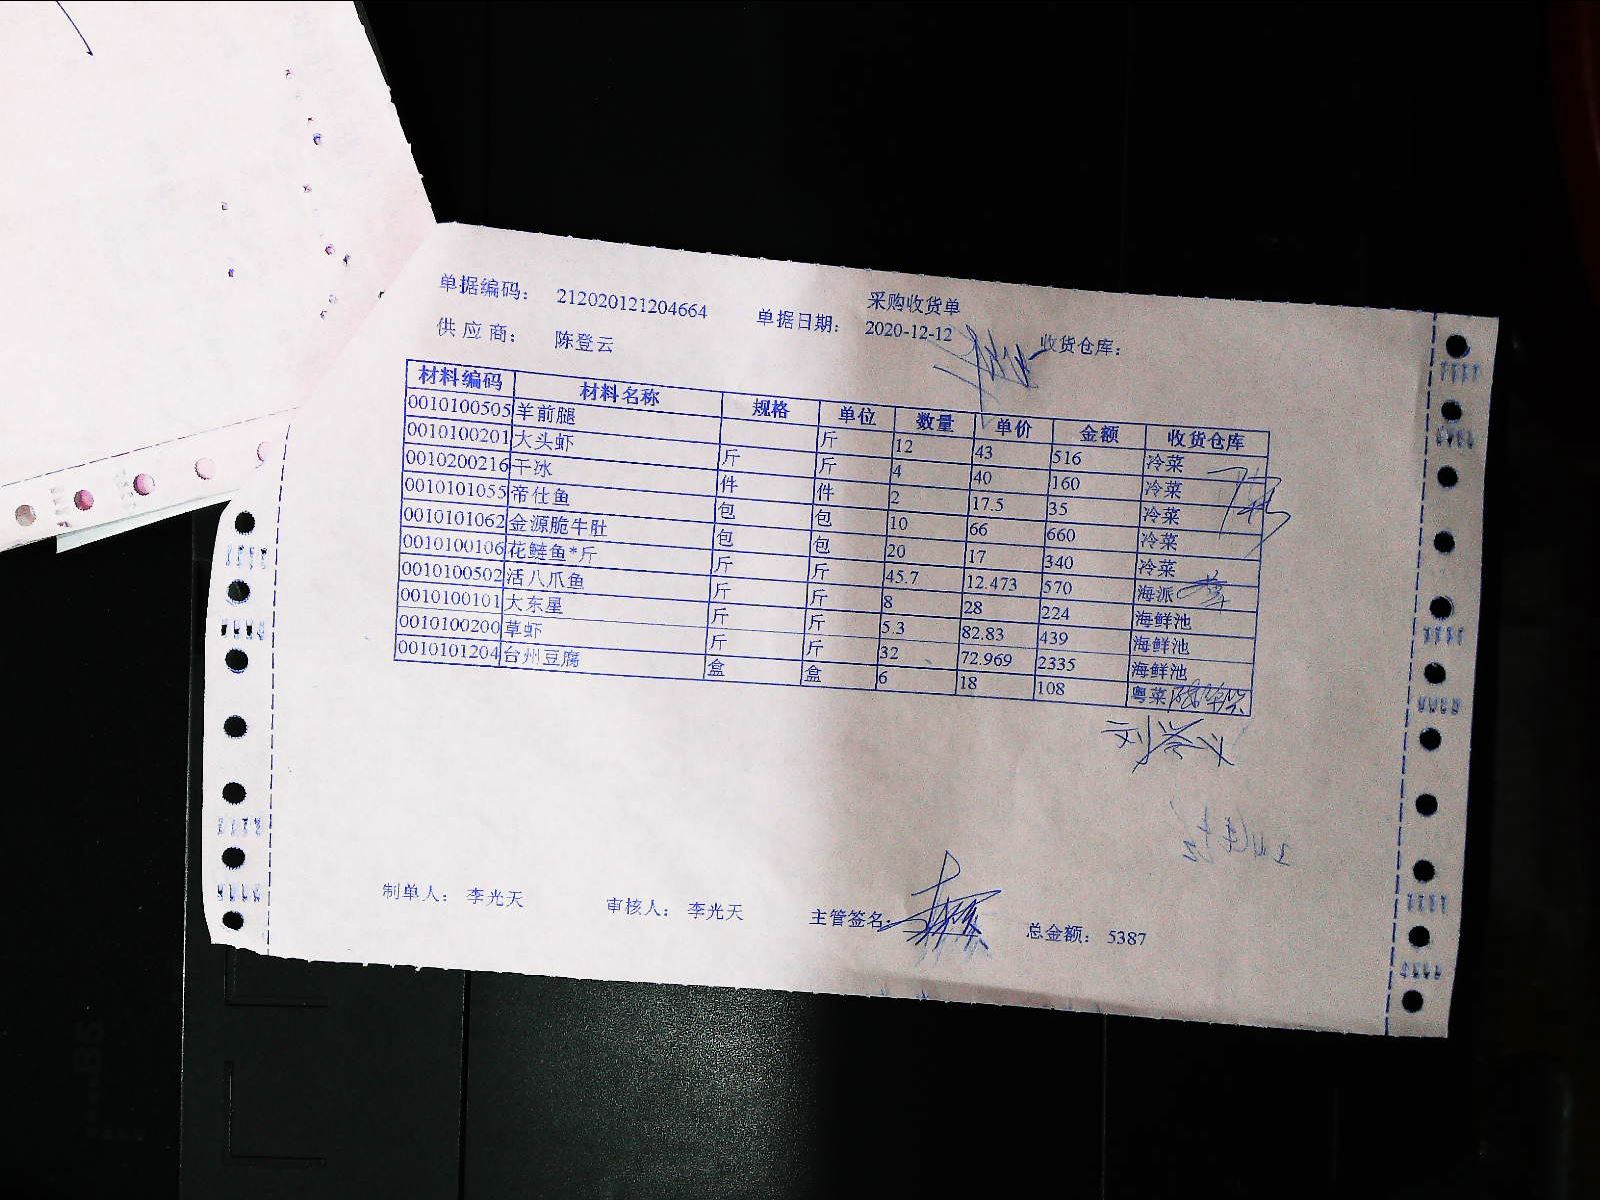 采购收货单
单据编码： 212020121204664 单据日期： 2020-12-12 收货仓库：
供 应 商： 陈登云
材料编码 材料名称 规格 单位 数量 单价 金额 收货仓库
0010100505 羊前腿 斤 12 43 516 冷菜
0010100201 大头虾 斤 斤 4 40 160 冷菜
0010200216 干冰 件 件 2 17.5 35 冷菜
0010101055 帝仕鱼 包 包 10 66 660 冷菜
0010101062 金源脆牛肚 包 包 20 17 340 冷菜
0010100106 花鲢鱼*斤 斤 斤 45.7 12.473 570 海派
0010100502 活八爪鱼 斤 斤 8 28 224 海鲜池
0010100101 大东星 斤 斤 5.3 82.83 439 海鲜池
0010100200 草虾 斤 斤 32 72.969 2335 海鲜池
0010101204 台州豆腐 盒 盒 6 18 108 粤菜
制单人： 李光天 审核人： 李光天 主管签名： 总金额： 5387